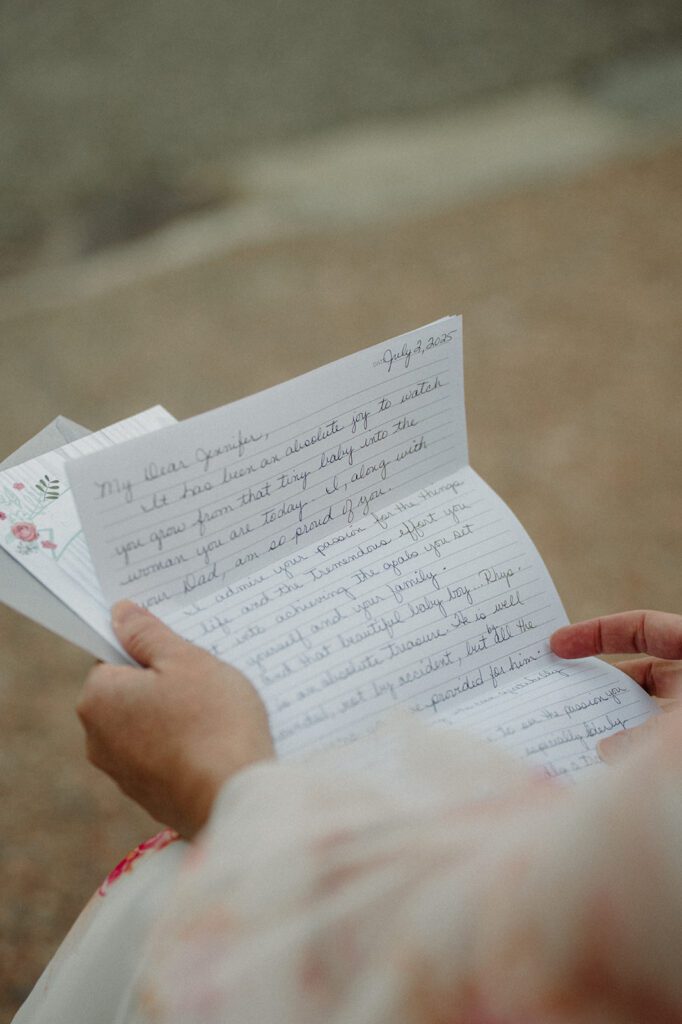 DATE July 2, 2025
My Dear Jennifer,
It has been an absolute joy to watch
you grow from that tiny baby into the
woman you are today. I, along with
your Dad, am so proud of you.
I admire your passion for the things
life and the tremendous effort you
into achieving the goals you set
yourself and your family.
And that beautiful baby boy... Rhys.
is an absolute treasure. He is well
not by accident, but by all the
provided for him.
to see the passion you
especially elderly